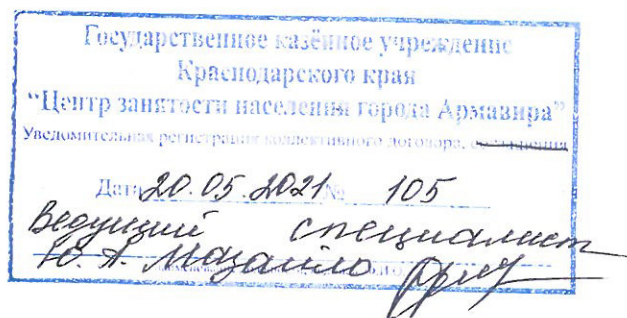 Государственное казённое учреждение
Краснодарского края
“Центр занятости населения города Армавира”
Уведомительная регистрация коллективного договора, соглашения
Дата 20.05.2021 № 105
Ведущий специалист
Ю. А. Мазайло